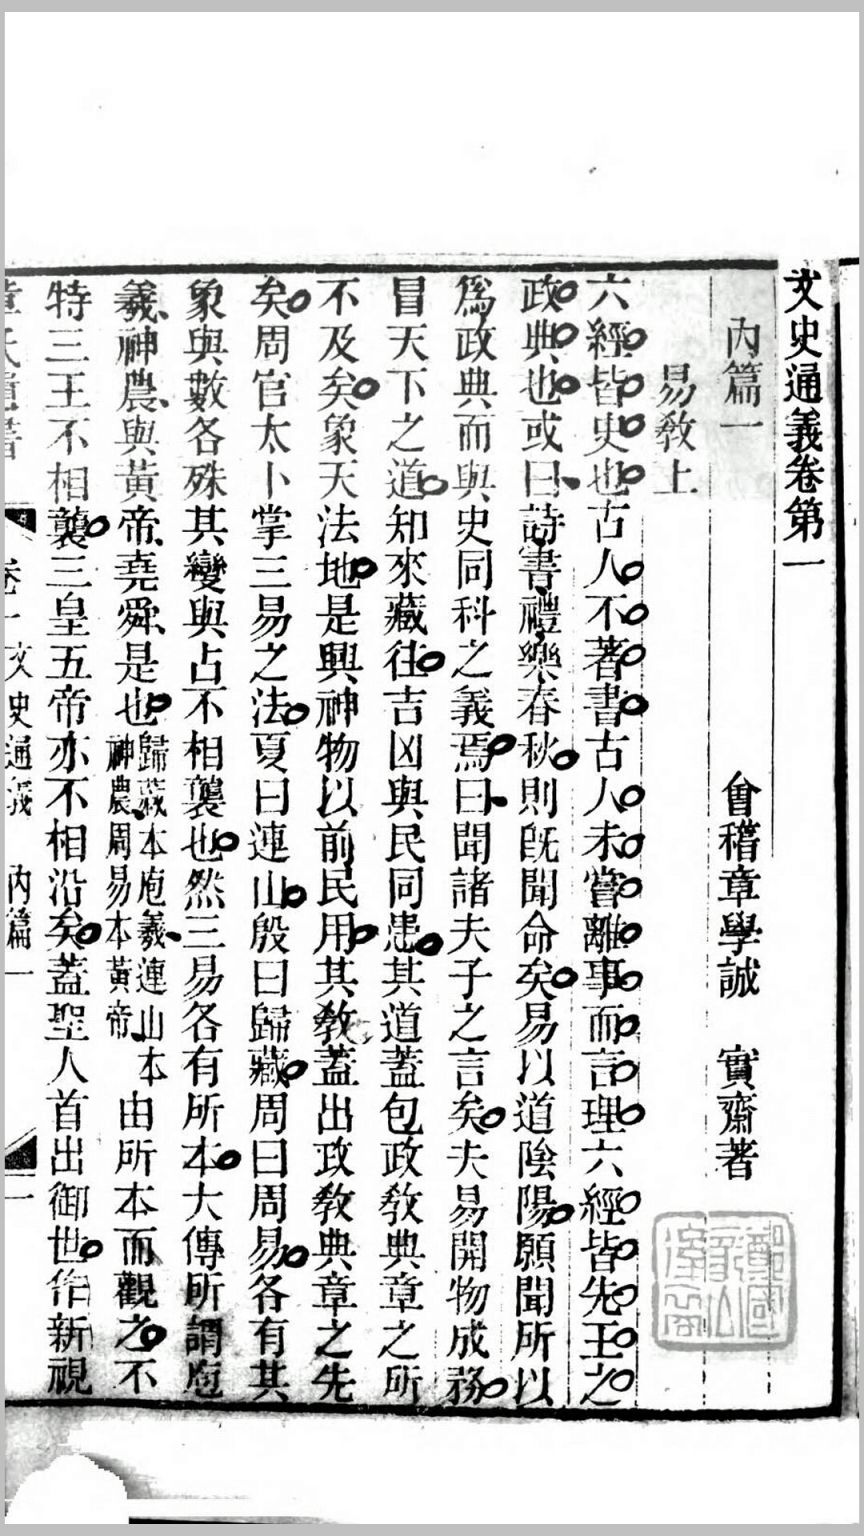 文史通義卷第一
內篇一
會稽章學誠 實齋著
易敎上
六經皆史也古人不著書古人未嘗離事而言理六經皆先王之
政典也或曰詩書禮樂春秋則旣聞命矣易以道陰陽願聞所以
爲政典而與史同科之義焉曰聞諸夫子之言矣夫易開物成務
冒天下之道知來藏往吉凶與民同患其道蓋包政敎典章之所
不及矣象天法地是興神物以前民用其敎蓋出政敎典章之先
矣周官太卜掌三易之法夏曰連山殷曰歸藏周曰周易各有其
象與數各殊其變與占不相襲也然三易各有所本大傳所謂庖
羲神農與黃帝堯舜是也歸藏本庖羲連山本神農周易本黃帝由所本而觀之不
特三王不相襲三皇五帝亦不相沿矣蓋聖人首出御世作新視
章氏遺書 卷一 文史通義 內篇一 一